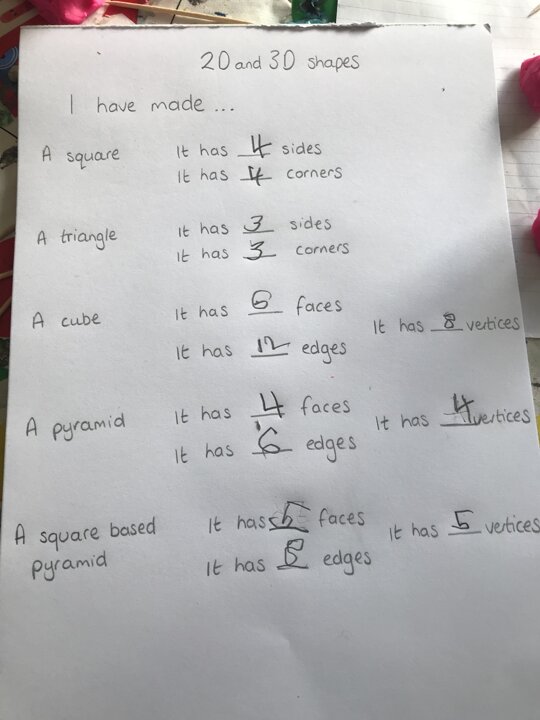 2D and 3D shapes
I have made ...
A square It has 4 sides
It has 4 corners
A triangle It has 3 sides
It has 3 corners
A cube It has 6 faces
It has 8 vertices
It has 12 edges
A pyramid It has 4 faces
It has 4 vertices
It has 6 edges
A square based pyramid It has 5 faces
It has 5 vertices
It has 8 edges